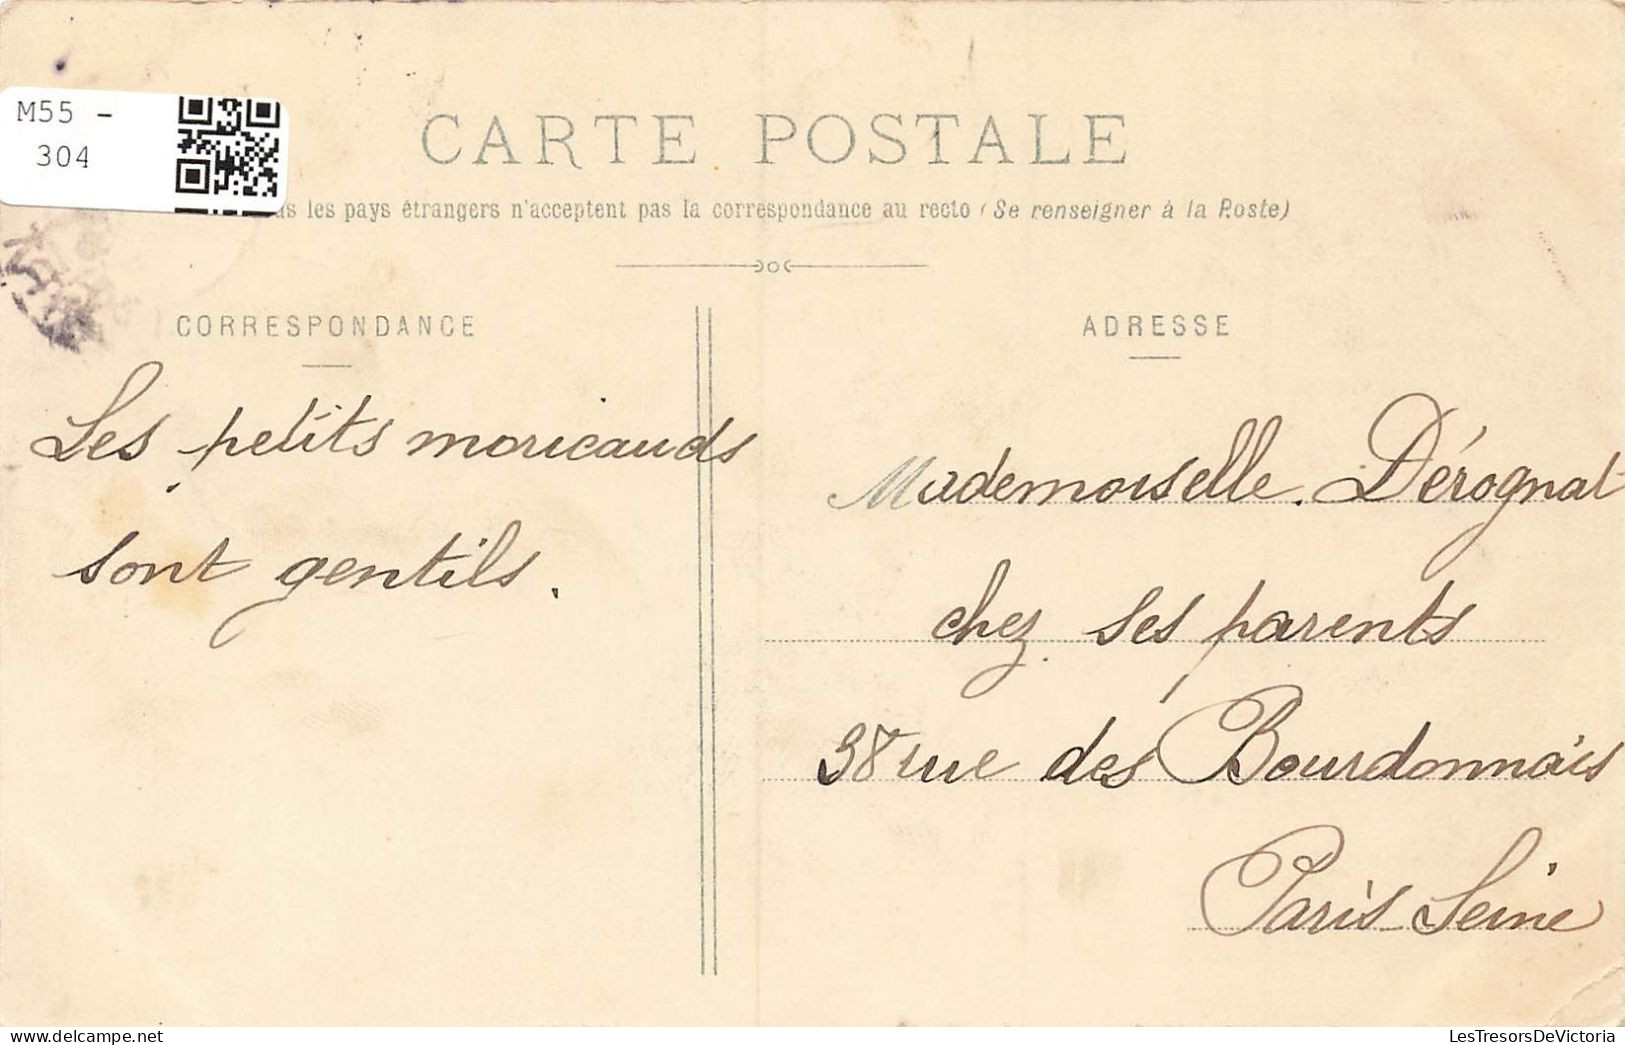 M55 -
304
CARTE POSTALE
les pays étrangers n'acceptent pas la correspondance au recto (Se renseigner à la Poste)
CORRESPONDANCE
Les petits moricauds
sont gentils.
ADRESSE
Mademoiselle Dérognat
chez ses parents
38 rue des Bourdonnais
Paris Seine
LesTresorsDeVictoria
delcampe.net